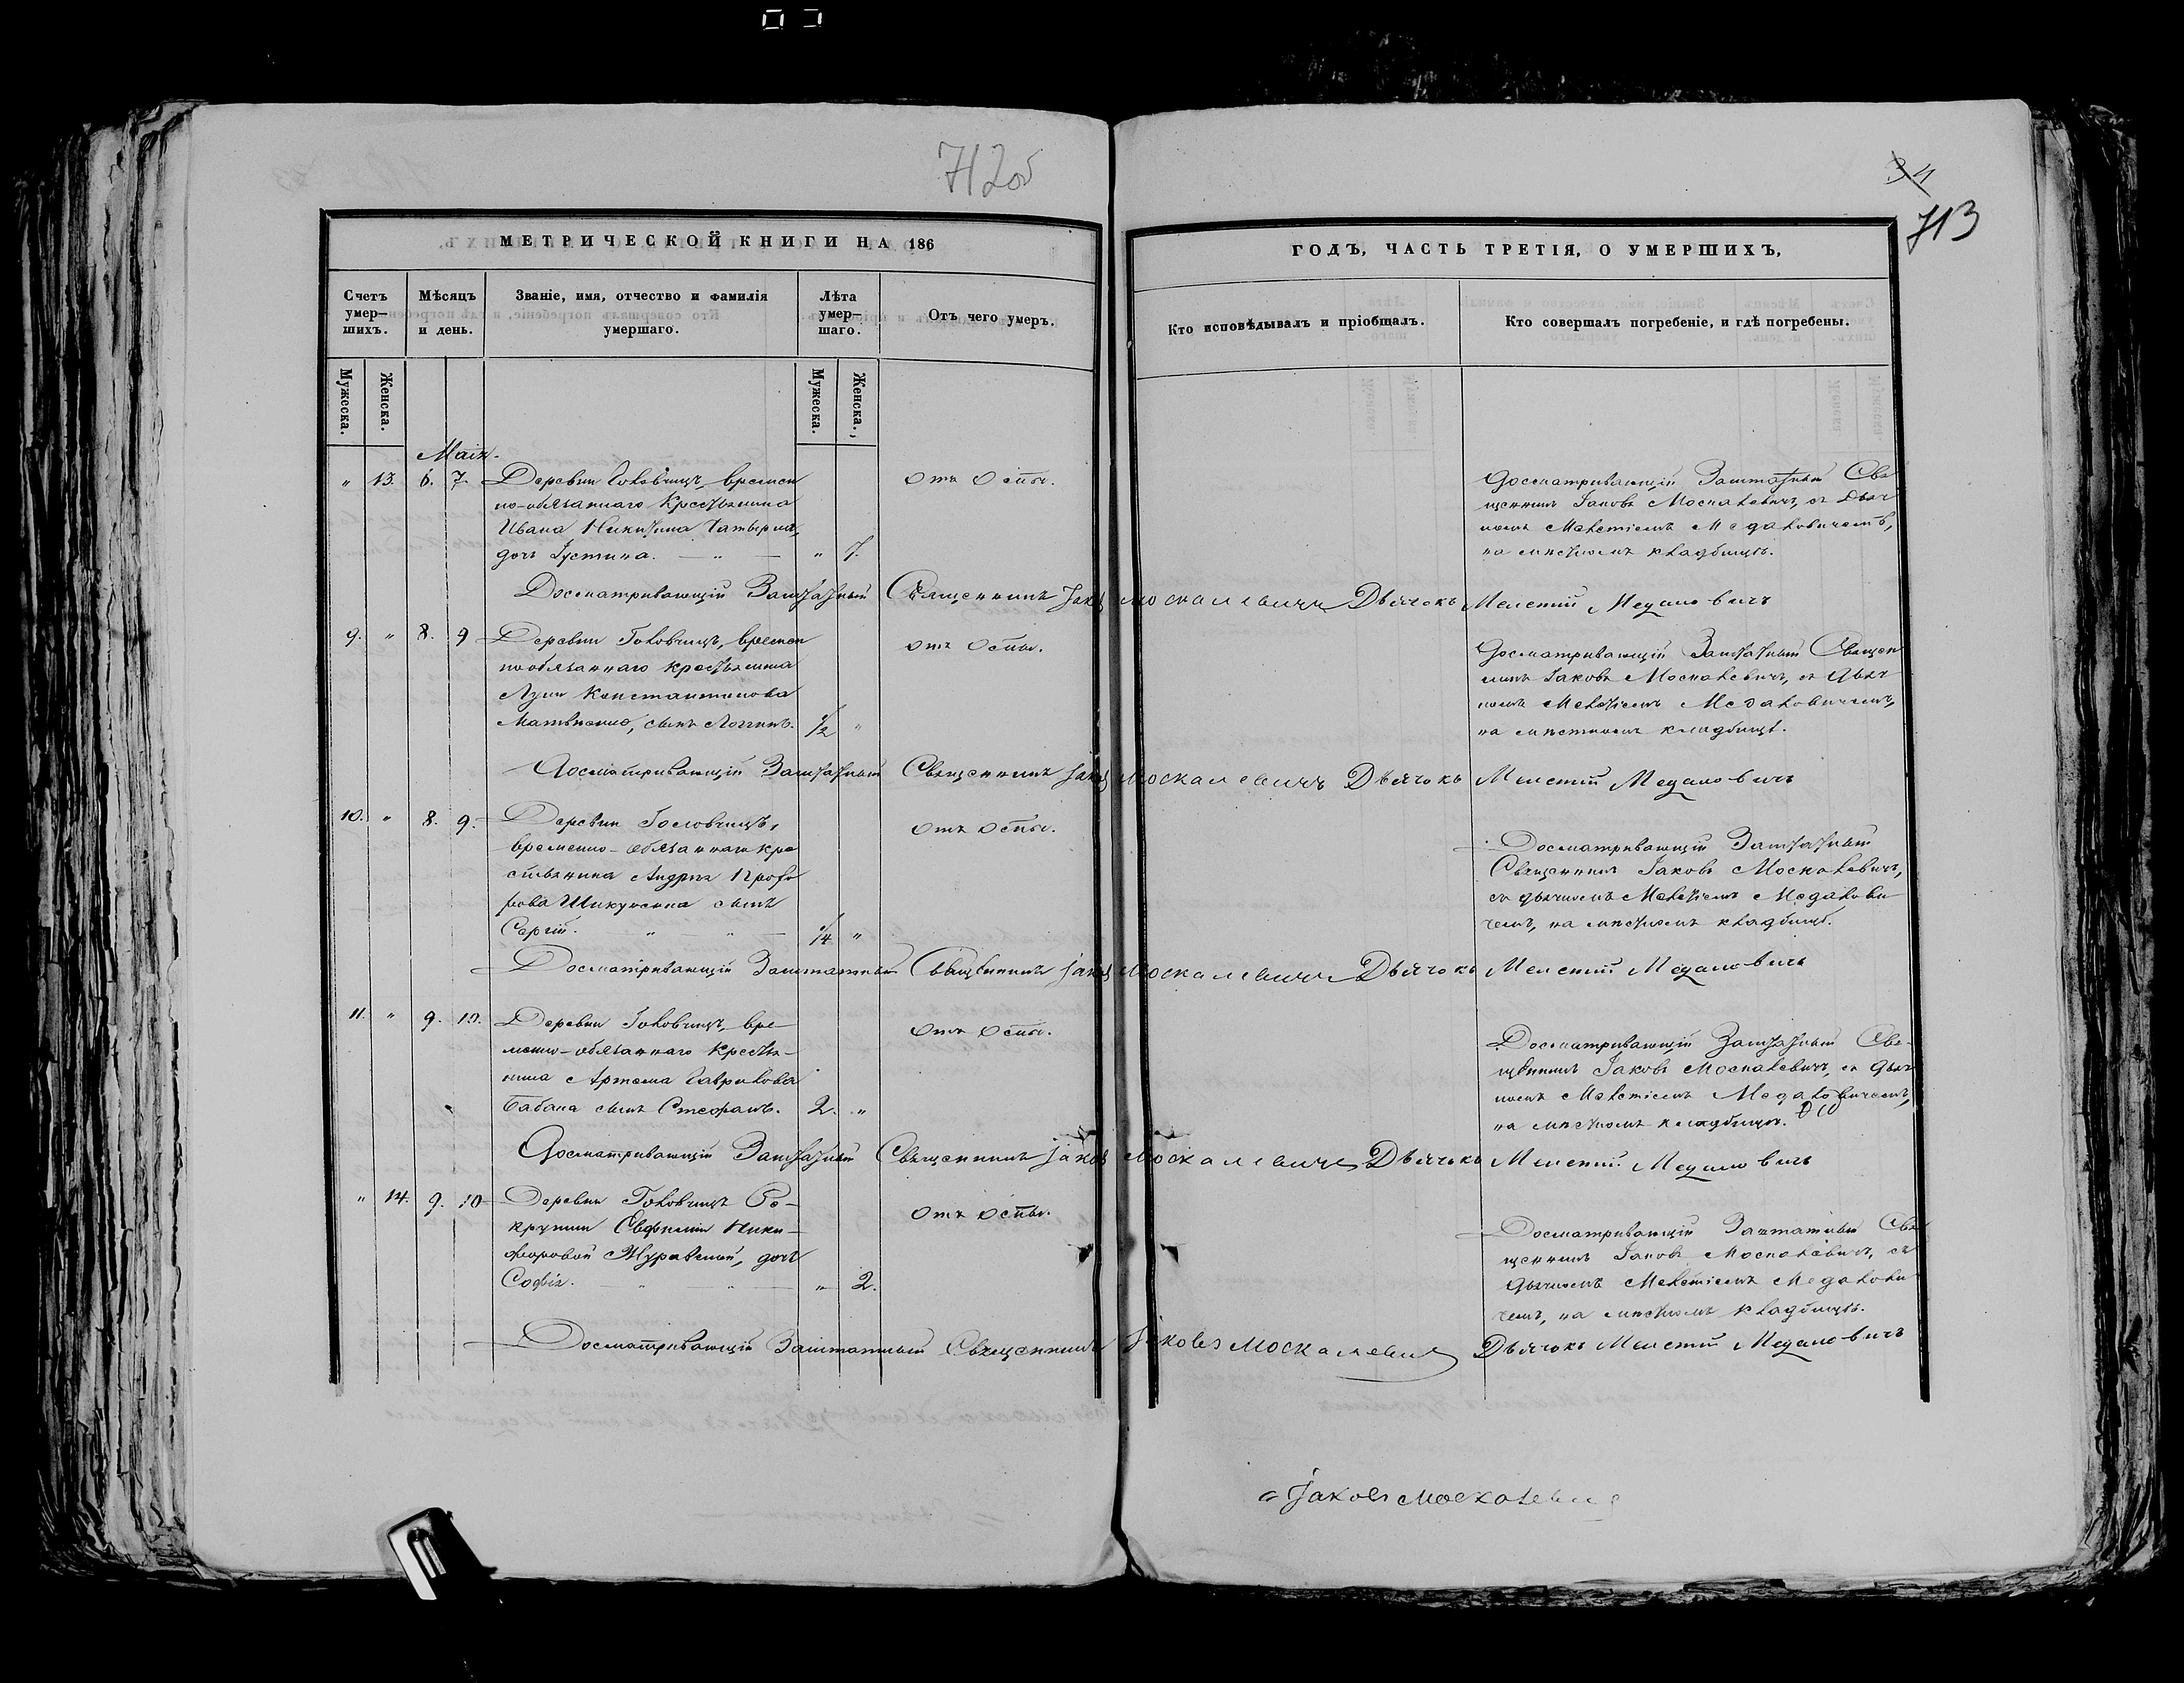 712 об
34
713
МЕТРИЧЕСКОЙ КНИГИ НА 186
ГОДЪ, ЧАСТЬ ТРЕТІЯ, О УМЕРШИХЪ,
Счетъ умер–шихъ.
Мѣсяцъ и день.
Званіе, имя, отчество и фамилія умершаго.
Лѣта умер–шаго.
Отъ чего умеръ.
Кто исповѣдывалъ и пріобщалъ.
Кто совершалъ погребеніе, и гдѣ погребены.
Мужеска.
Женска.
Мужеска.
Женска.
Маія.
" 13. 6. 7. Деревни Головчицъ, времен
но-обязаннаго крестьянина
Ивана Никитина
дочь Іустина. — " — " 7.
отъ оспы.
Досматривающій Заштатный Свя
щенникъ Іаковъ Москалевичъ, съ Дьяч
комъ Мелетіемъ Медаловичемъ,
на мѣстномъ кладбищѣ.
Досматривающій Заштатный Священникъ Іаковъ Москалевичъ Дьячокъ Мелетій Медаловичъ
9. " 8. 9 Деревни Головчицъ, времен
нообязаннаго крестьянина
Константинова
Матвѣенко, сынъ Логгинъ. 1/2 "
отъ оспы.
Досматривающій Заштатный Священ
никъ Іаковъ Москалевичъ, съ Дьяч
комъ Мелетіемъ Медаловичемъ,
на мѣстномъ кладбищѣ.
Досматривающій Заштатный Священникъ Іаковъ Москалевичъ Дьячокъ Мелетій Медаловичъ
10. " 8. 9. Деревни Головчицъ,
временно-обязаннаго кре
стьянина Андрея Прохо
рова сынъ
Сергій. — " — " — 1/4 "
отъ оспы.
Досматривающій Заштатный
Священникъ Іаковъ Москалевичъ,
съ дьячкомъ Мелетіемъ Медалови
чемъ, на мѣстномъ кладбищѣ.
Досматривающій Заштатный Священникъ Іаковъ Москалевичъ Дьячокъ Мелетій Медаловичъ
11. " 9. 10. Деревни Головчицъ, вре–
менно-обязаннаго крестья–
нина Артема Гаврилова
Бабака сынъ Стефанъ. 2. "
отъ оспы.
Досматривающій Заштатный Свя–
щенникъ Іаковъ Москалевичъ, съ Дьяч
комъ Мелетіемъ Медаловичемъ,
на мѣстномъ кладбищѣ.
Досматривающій Заштатный Священникъ Іаковъ Москалевичъ Дьячокъ Мелетій Медаловичъ
" 14. 9. 10 Деревни Головчицъ Ре–
крутки Евфиміи Ники–
форовой Журавской, дочь
Софія. — " — " — " 2.
отъ оспы.
Досматривающій Заштатный Свя
щенникъ Іаковъ Москалевичъ, съ
Дьячкомъ Мелетіемъ Медалови
чемъ, на мѣстномъ кладбищѣ.
Досматривающій Заштатный Священникъ Іаковъ Москалевичъ Дьячокъ Мелетій Медаловичъ
Іаковъ Москалевичъ